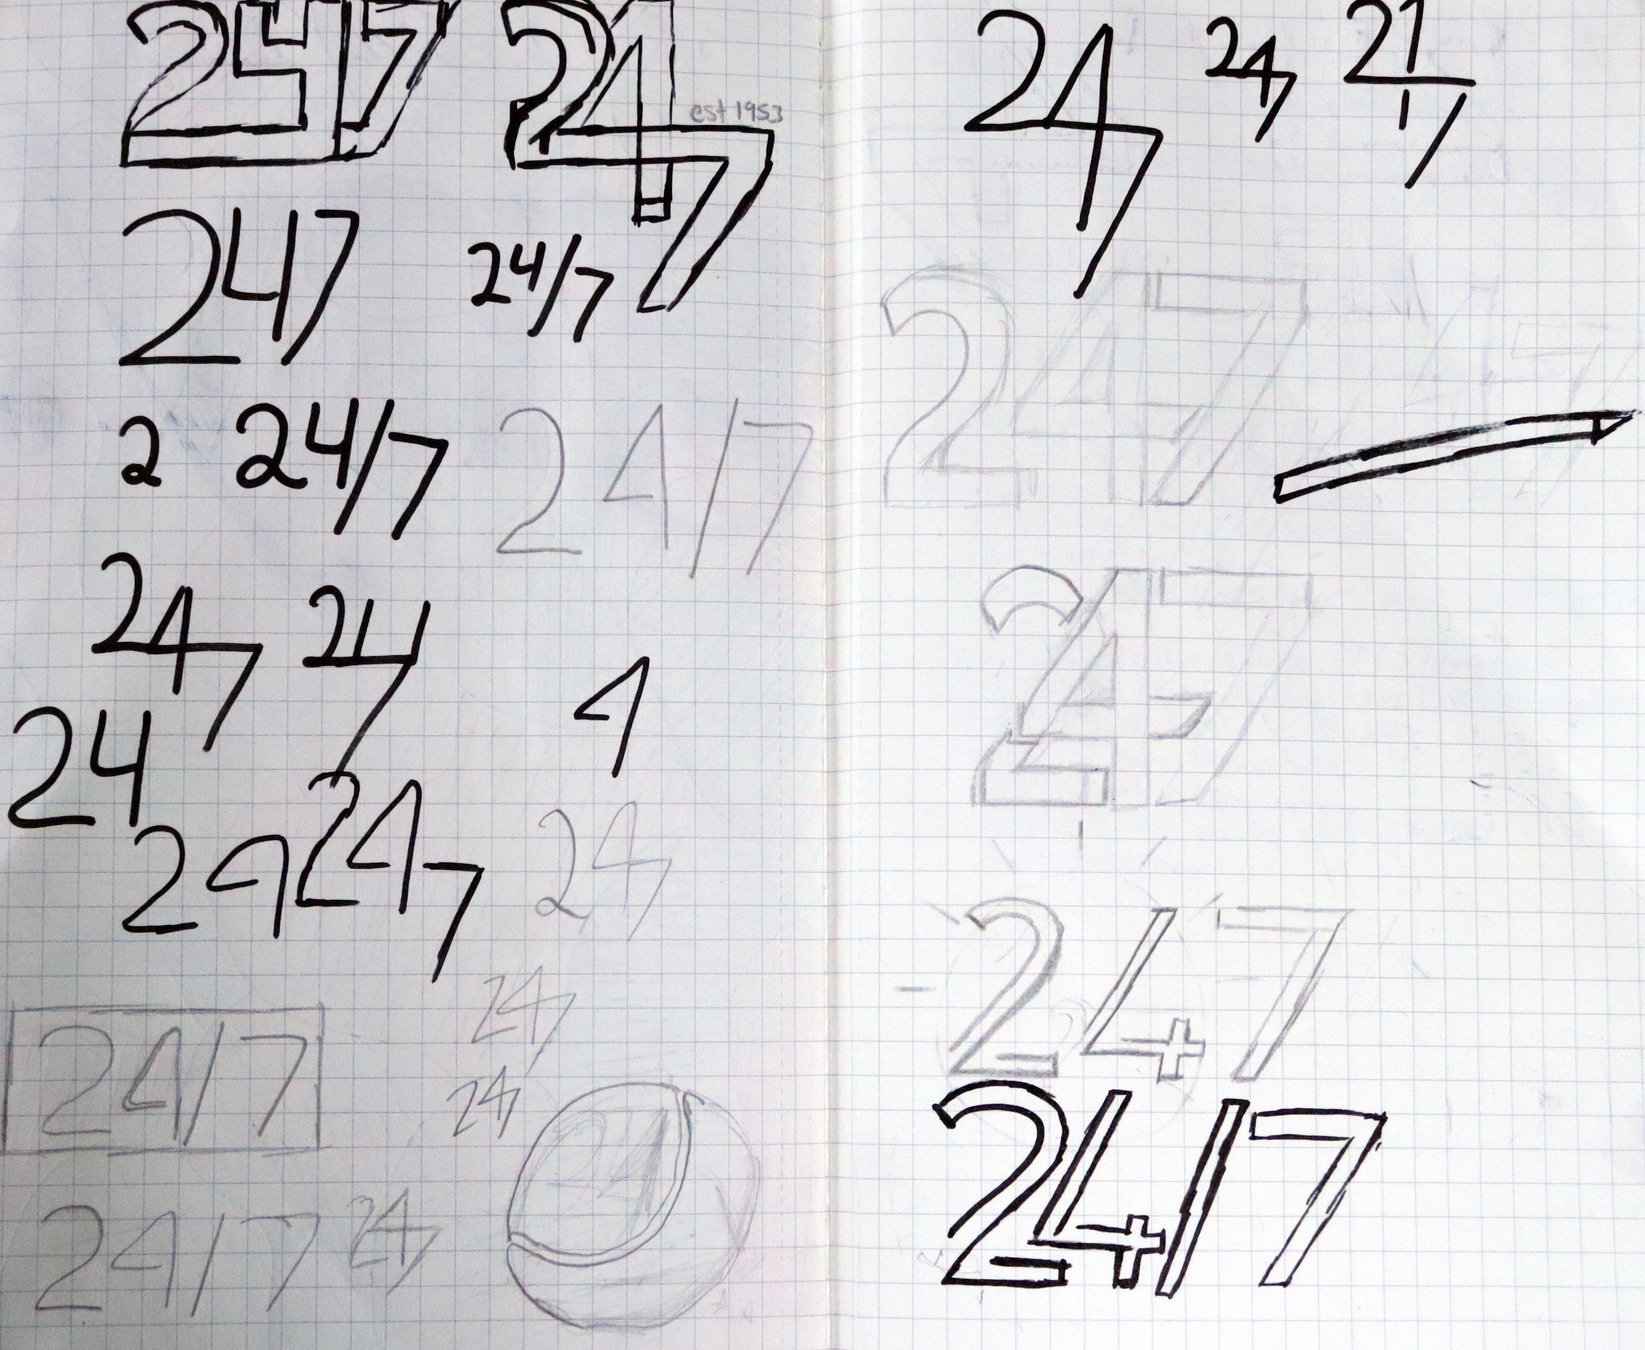 247 247
est 1953
247
24/7
2 24/7 24/7
247 247
4
24
29 247
247
247
24/7
247
24
24/7 247
247 247 21/7
247
47
247
247
24/7